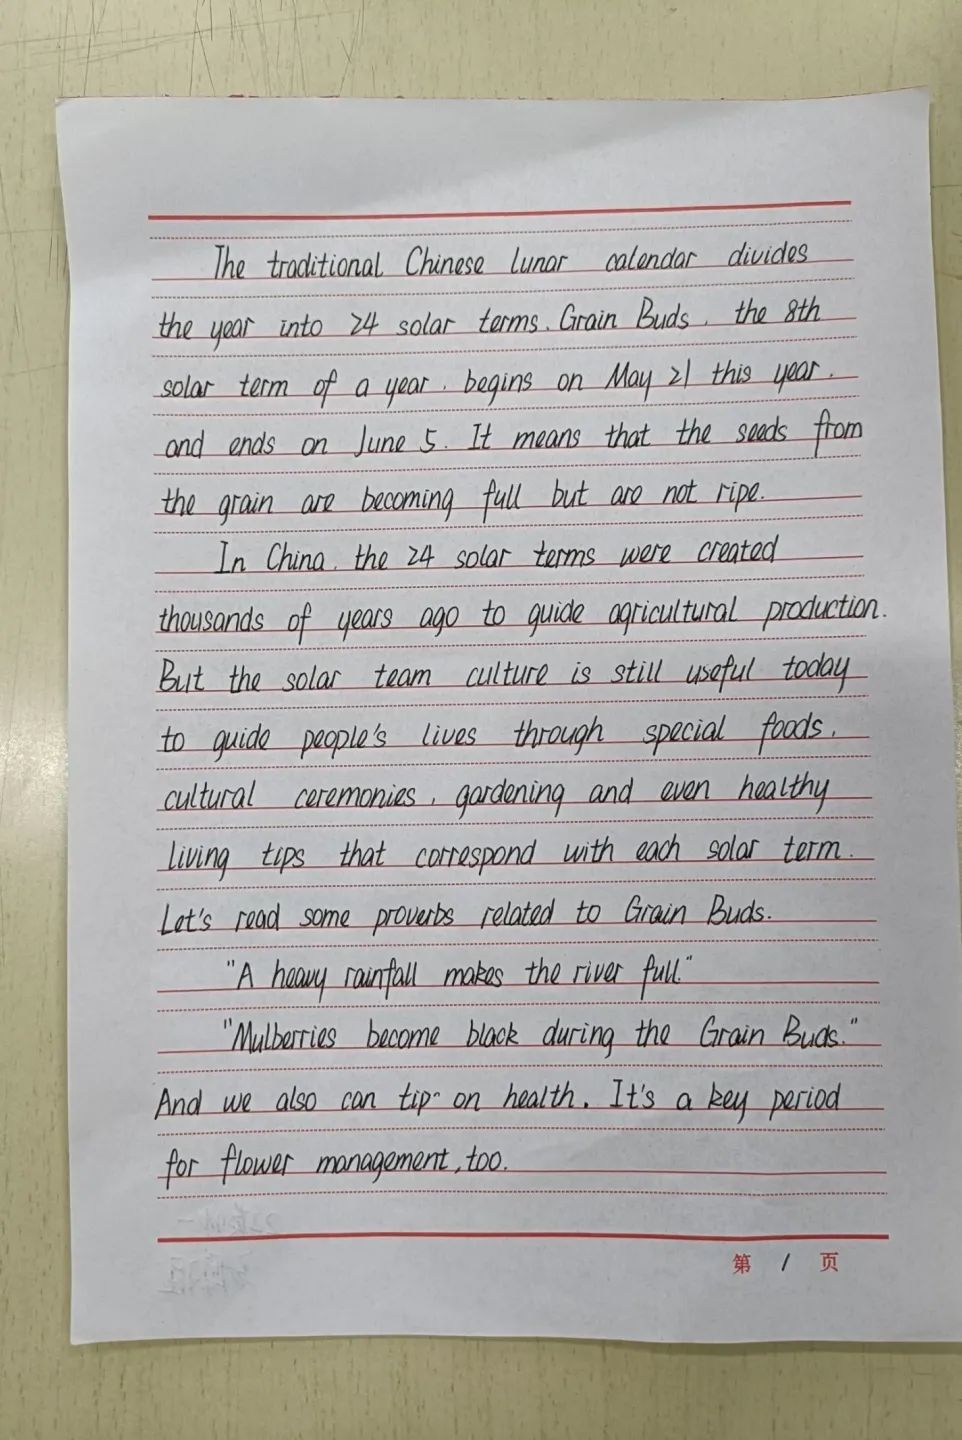 The traditional Chinese lunar calendar divides
the year into 24 solar terms. Grain Buds, the 8th
solar term of a year, begins on May 21 this year,
and ends on June 5. It means that the seeds from
the grain are becoming full but are not ripe.
In China, the 24 solar terms were created
thousands of years ago to guide agricultural production.
But the solar team culture is still useful today
to guide people's lives through special foods,
cultural ceremonies, gardening and even healthy
living tips that correspond with each solar term.
Let's read some proverbs related to Grain Buds.
"A heavy rainfall makes the river full."
"Mulberries become black during the Grain Buds."
And we also can tip on health. It's a key period
for flower management, too.
第 1 页